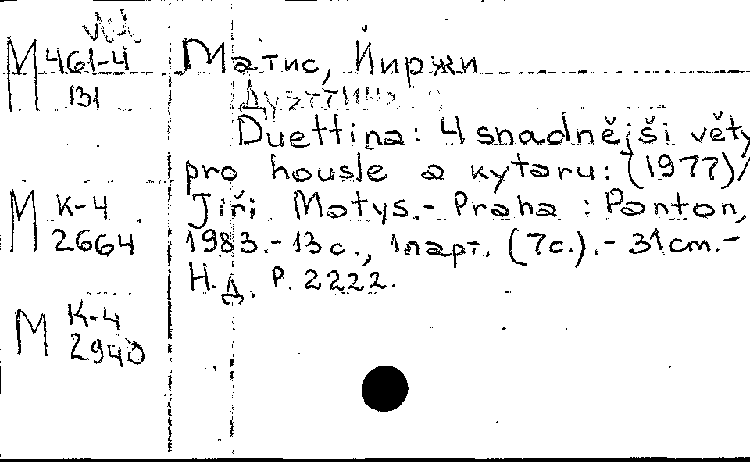 М 461-4
131
Матис, Йиржи
Дуэттина
Duettina: 4 snadnější věty
pro housle a kytaru: (1977)/
Jiří Matys.- Praha : Panton,
1983.- 13 с., 1 парт. (7с.).- 31 cm.-
Н.Д. Р. 2222.
М К-4
2664
М К-4
2940